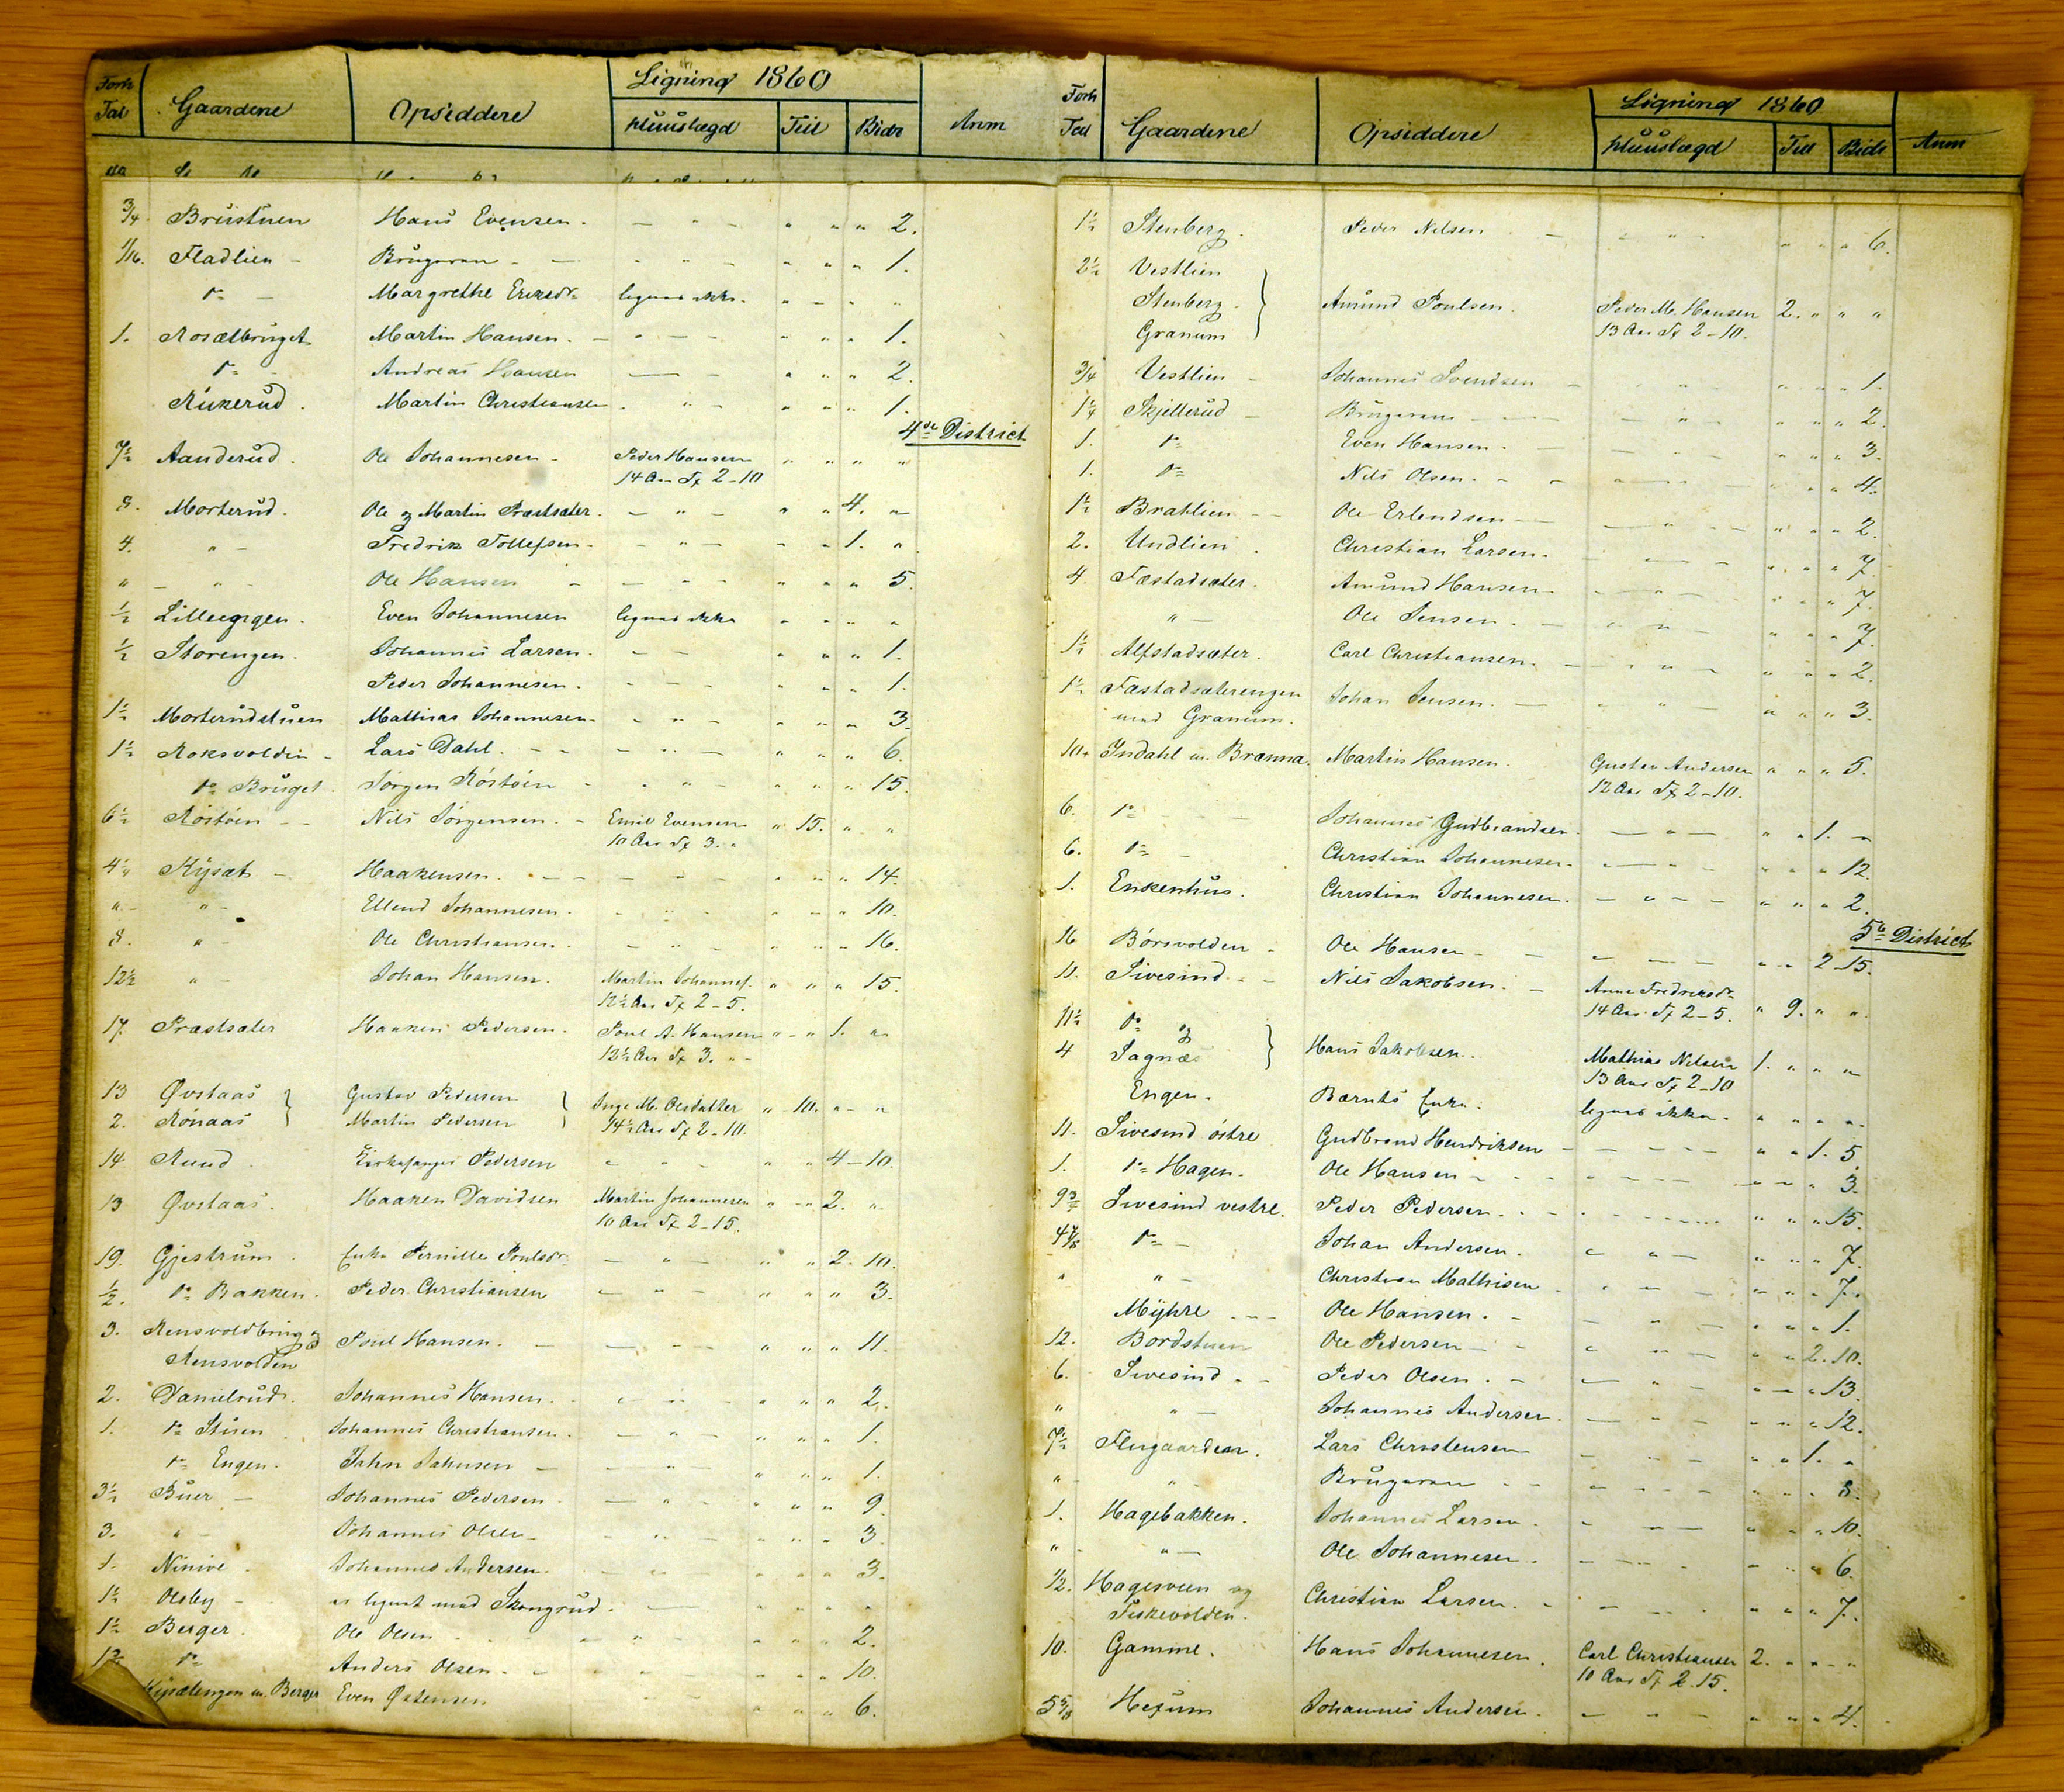 Forh Tal Gaardene Opsiddere Ligning 1860 Anm
Huuslægd Till Bidr
3/4 Brustuen Hans Evensen. - " - " " " 2.
1/16. Fladlien - Brugeren - - " - " " " 1.
Do - Margrethe Ericsdr lignes ikke. " - " "
1. Rosætbruget Martin Hansen. - " - - " " " 1.
Do - Andreas Hansen - - " " " 2.
Rukerud. Martin Christiansen. " - " " " 1.
4de District
7½ Aanderud. Ole Johannesen - Peder Hansen " " " "
14 Aar Sp 2-10
8. Morterud. Ole og Martin Præstsæter. - " - " " 4. "
4. " - Fredrik Tollefsen. - " - " " 1. "
" - " - Ole Hansen - - - " " " 5.
½ Lilleengen. Even Johannesen lignes ikke " " " "
½ Storengen. Johannes Larsen. - - " " " 1.
Peder Johannesen. - - - " " " 1.
1½ Morterudstuen Mathias Johannesen - " - " " " 3.
1½ Roksvolden - Lars Dahl. - - - " - " " " 6.
Do Bruget. Jørgen Röstöen - " " - " " " 15.
6½ Röstöen - - Nils Jörgensen. - Emil Evensen " 15. " "
10 Aar Sp 3. "
4¼ Kysæt - Haakensen. - - - - - " " " 14.
" - " - Ellend Johannesen. - " - " - " 10.
8. " - Ole Christiansen. - " - " " - 16.
12½ " - Johan Hansen. Martin Johannes. " " " 15.
12½ Aar Sp 2-5.
17. Præstsæter Haaken Pedersen. Poul A. Hansen " - " 1. "
12½ Aar Sp 3. " -
13 Øvstaas } Gustav Pedersen } Inge M. Olsdatter " 10. " - "
2. Rönaas Martin Pedersen 14½ Aar Sp 2-10.
14 Ruud. Kirkesanger Pedersen - - - " " 4-10.
13 Øvstaas. Haaken Davidsen Martin Johannesen " - " 2. "
10 Aar Sp 2-15.
19. Gjestrum. Enke Pernille Poulsdr - " - " " 2-10.
½. Do Bakken. Peder Christiansen - " - " " " 3.
3. Rensvoldbrug og Poul Hansen. - - - - " " " 11.
Rensvolden
2. Danielrud. Johannes Hansen. - - - " " " 2.
1. Do Stuen. Johannes Christiansen. - " - " " " 1.
Do Engen. Jahn Jahnsen - - " - " " " 1.
3½ Buer - Johannes Pedersen. - " - " " " 9.
3. " - Johannes Olsen - " - " " " 3.
1. Ninive. Johannes Andersen. - - - " " " 3.
1½ Olsby - er lignet med Skongrud. - " " " "
1½ Berger. Ole Olsen. - " - " " " 2.
Do Anders Olsen. - - " - " " " 10.
Kysætengen m. Berger Even Østensen - - " " " 6.
Forh Tal Gaardene Opsiddere Ligning 1860 Anm
Huuslægd Till Bidr
1½ Stenberg. Peder Nilsen - - " - " " " 6.
2½ Vestlien
Stenberg. } Amund Poulsen. Peder M. Hansen 2. " " "
Granum 13 Aar Sp 2-10.
3/4 Vestlien - Johannes Svendsen - " - " " " 1.
1¼ Skjellerud - Brugeren - - - " - " " " 2.
1. Do Even Hansen. - - " - " " " 3.
1. Do Nils Olsen. - - " - - " " " 4.
1½ Bratlien - Ole Erlendsen - - " - " " " 2.
2. Undlien. Christian Larsen. - - - " " " 7.
4. Fæstadsæter. Amund Hansen. - " - " " " 7.
" - Ole Jensen. - " " - " " " 7.
1½ Alfstadsæter. Carl Christiansen. - " " - " " " 2.
1½ Fæstadsæterengen Johan Jensen. - " " - " " " 3.
med Granum.
10. Indahl m. Brænna. Martin Hansen. Gustav Andersen " " " 5.
12 Aar Sp 2-10.
6. Do - Johannes Gudbrandsen. - " - " " 1. "
6. Do - Christian Johannesen. - " - " " " 12.
1. Enkenhus. Christian Johannesen. - " - " " " 2.
5te District
16 Börsvolden - Ole Hansen - - - - " " 2-15.
11. Sivesind - - Nils Jakobsen. - Anne Fredriksdr " 9. " "
14 Aar Sp 2-5.
11½ Do og } Hans Jakobsen. Mathias Nilsen 1. " " "
4 Sagnæs 13 Aar Sp 2-10
Engen. Bærnts Enke. lignes ikke. " " " "
11. Sivesind östre Gudbrand Hendriksen - - - " " 1. 5.
1. Do Hagen. Ole Hansen - - - - - " " 3.
9¾ Sivesind vestre. Peder Pedersen. - - - - " " " 15.
4⅞ Do - Johan Andersen. - " - " " " 7.
" " - Christian Mathisen - " - " " " 7.
Myhre - - - Ole Hansen. - - " - " " " 1.
12. Bordstuen Ole Pedersen - - - " - " " 2. 10.
6. Sivesind - - Peder Olsen. - - " - " " " 13.
" " - Johannes Andersen. - " - " " " 12.
7½ Flugaarden. Lars Christensen - " - " " 1. "
" " - Brugeren - - - - - " " " 8.
1. Hagebakken. Johannes Larsen. - - - " " " 10.
" " - Ole Johannesen. - - - " " " 6.
½. Hagesveen og Christian Larsen. - - - " " " 7.
Fiskevolden.
10. Gamme. Hans Johannesen. Carl Christiansen 2. " " "
10 Aar Sp 2.15.
5⅝ Hexum Johannes Andersen. - - - " " " 4.